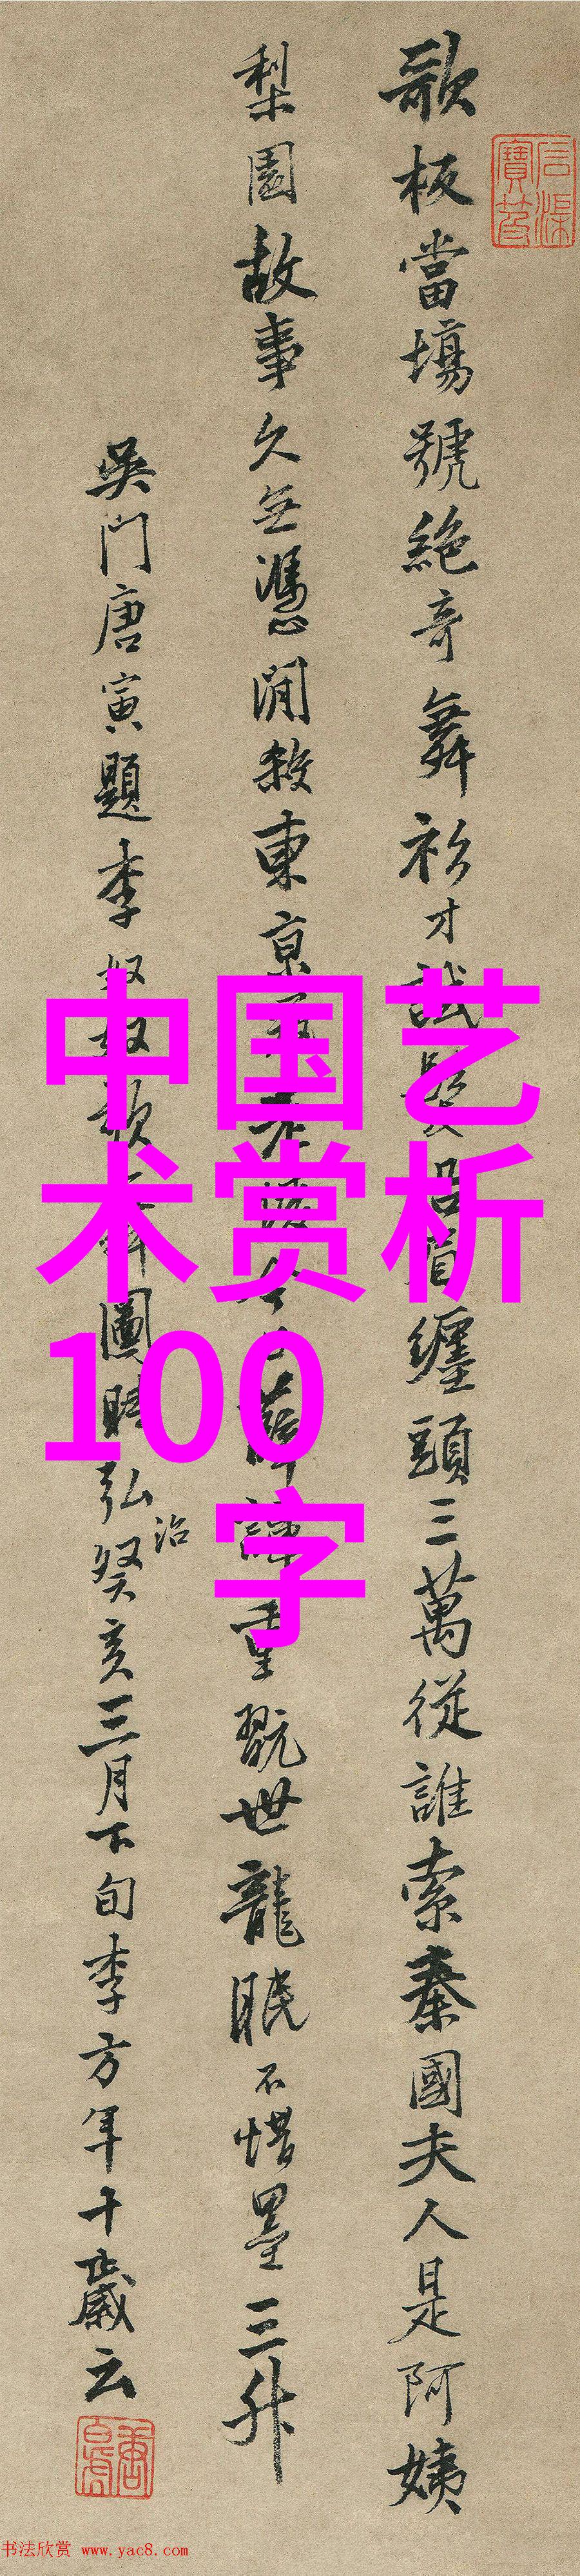 歌板當場號絕奇舞衫才試纏頭三萬從誰索秦國夫人是阿姨
梨園故事久無憑閒殺東京重翫世龍眠不惜墨三升
吳門唐寅題李奴奴歌圖時弘治癸亥三月下旬李方年十歲云
中国艺
术赏析
100
字
书法欣赏 www.yac8.com